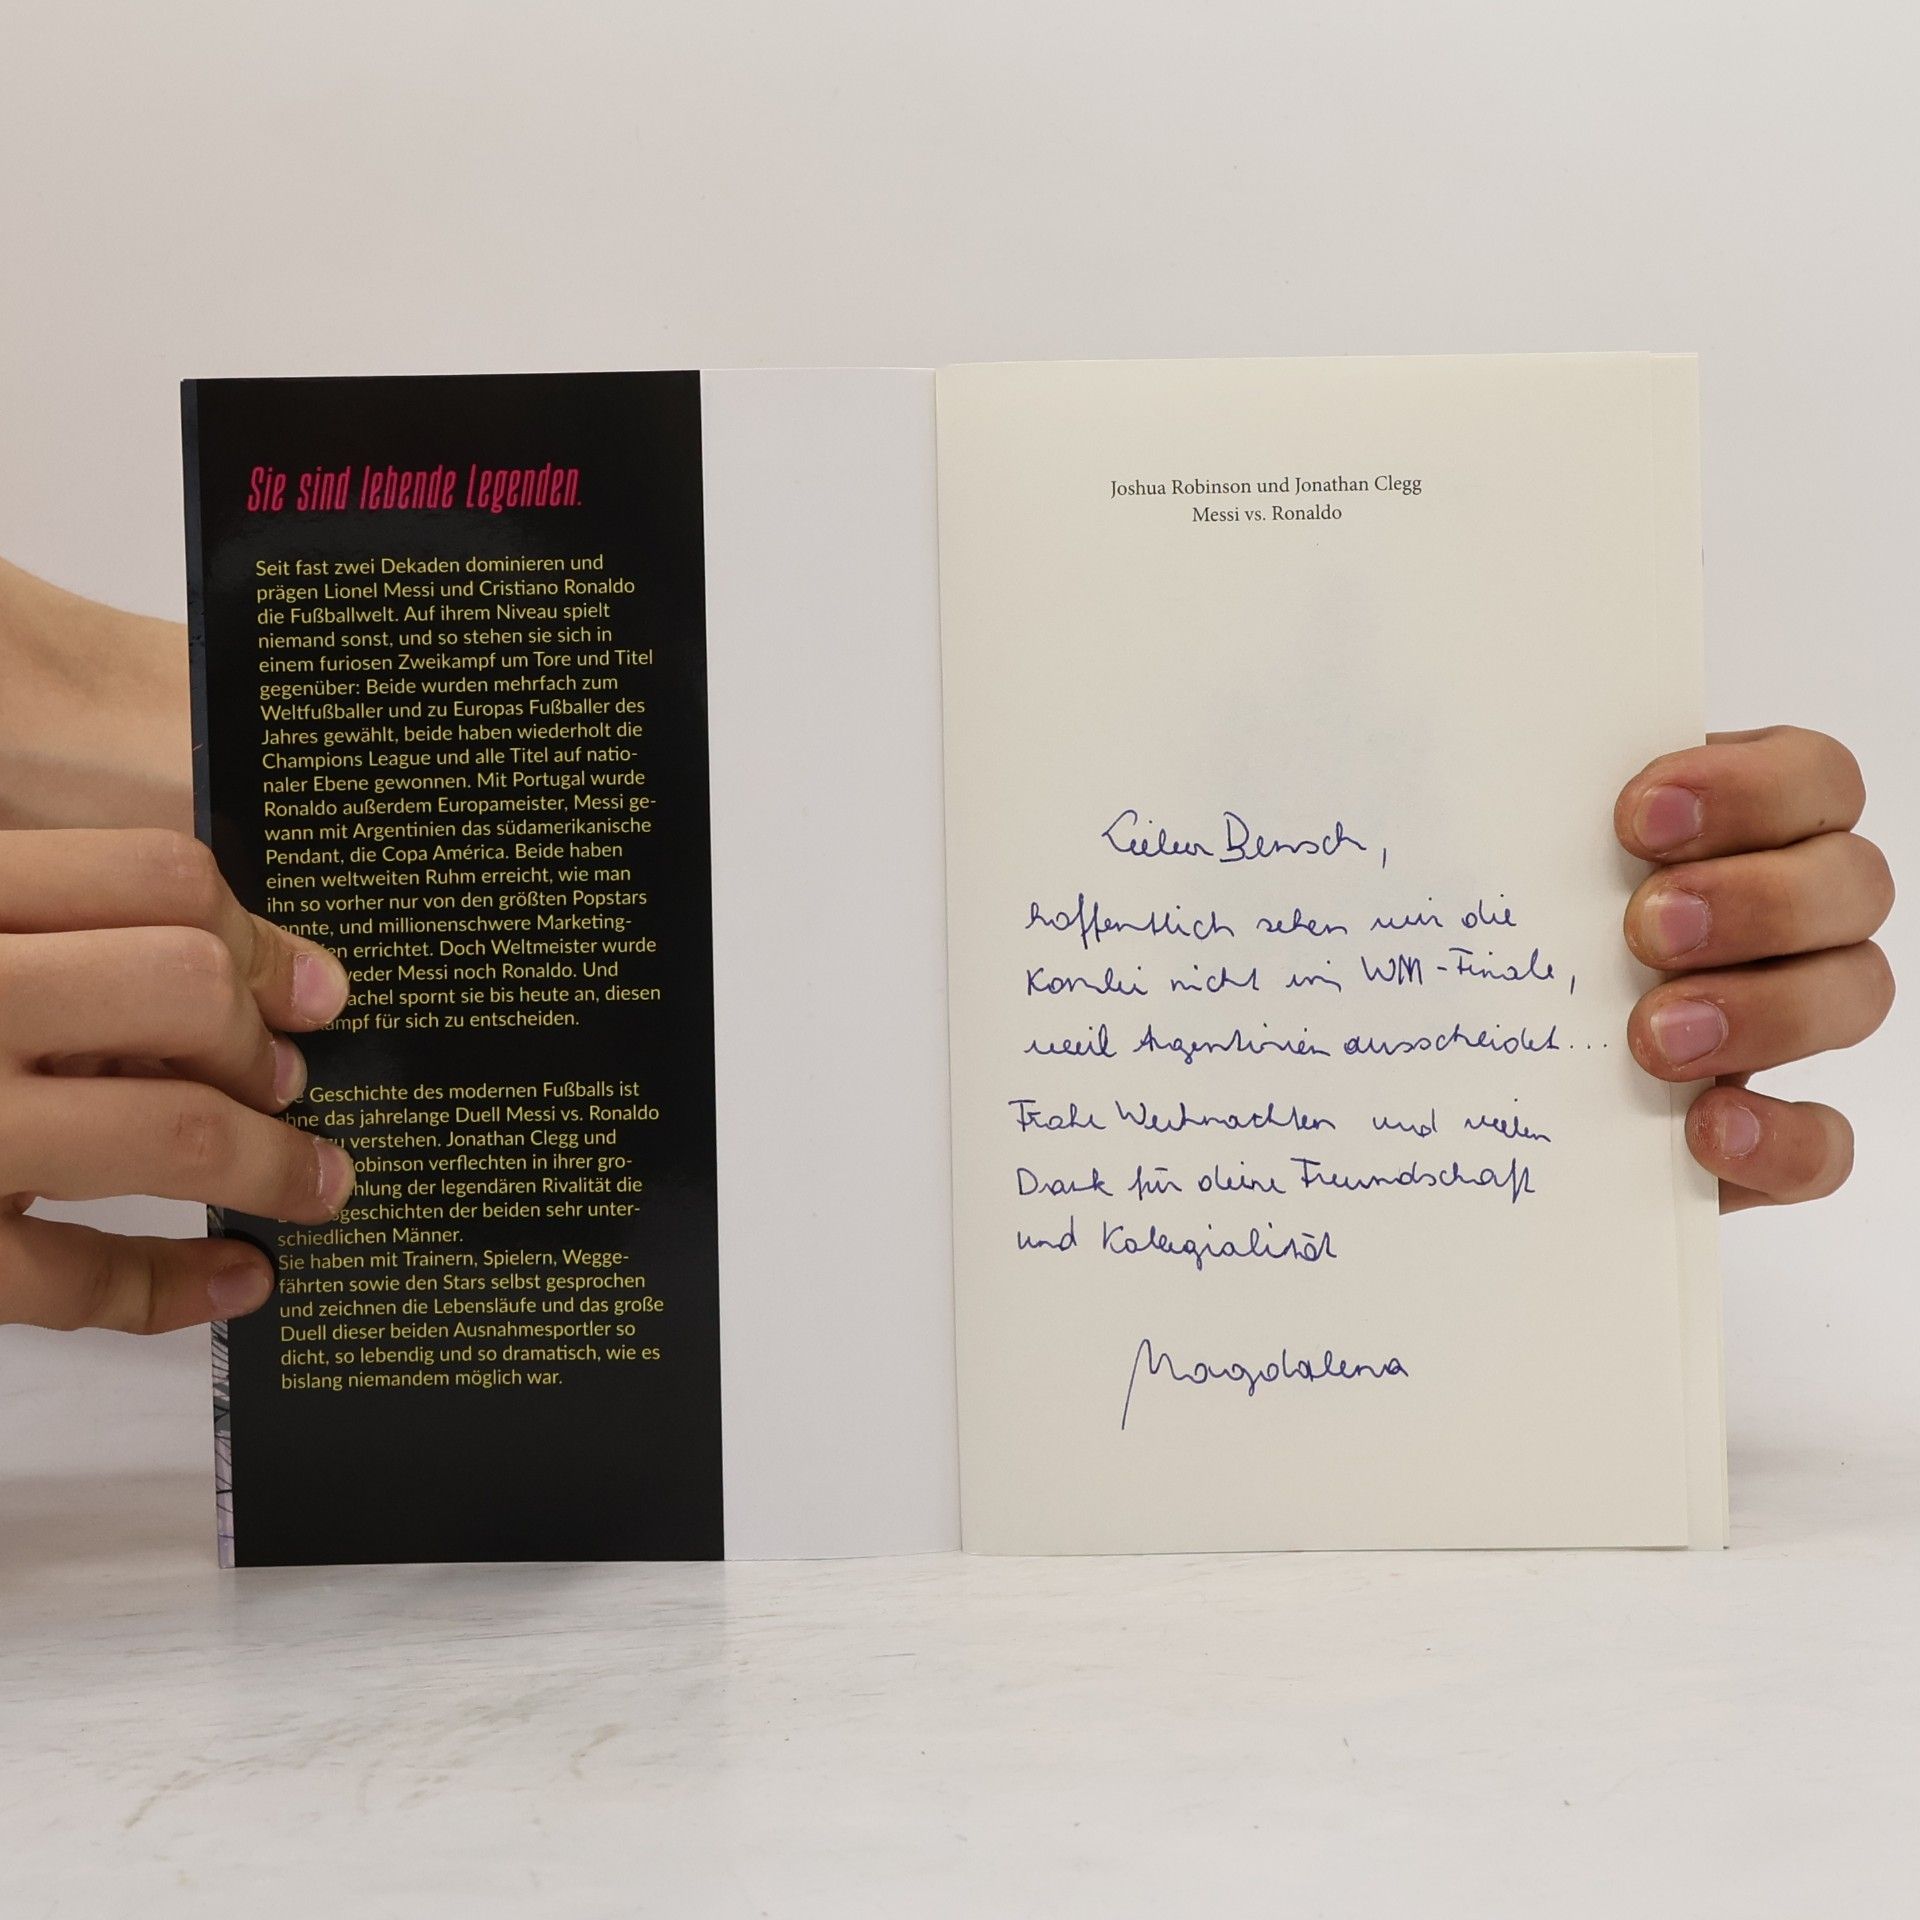 Sie sind lebende Legenden.
Seit fast zwei Dekaden dominieren und
prägen Lionel Messi und Cristiano Ronaldo
die Fußballwelt. Auf ihrem Niveau spielt
niemand sonst, und so stehen sie sich in
einem furiosen Zweikampf um Tore und Titel
gegenüber: Beide wurden mehrfach zum
Weltfußballer und zu Europas Fußballer des
Jahres gewählt, beide haben wiederholt die
Champions League und alle Titel auf natio-
naler Ebene gewonnen. Mit Portugal wurde
Ronaldo außerdem Europameister, Messi ge-
wann mit Argentinien das südamerikanische
Pendant, die Copa América. Beide haben
einen weltweiten Ruhm erreicht, wie man
ihn so vorher nur von den größten Popstars
onnte, und millionenschwere Marketing-
en errichtet. Doch Weltmeister wurde
weder Messi noch Ronaldo. Und
achel spornt sie bis heute an, diesen
ampf für sich zu entscheiden.
Geschichte des modernen Fußballs ist
hne das jahrelange Duell Messi vs. Ronaldo
u verstehen. Jonathan Clegg und
obinson verflechten in ihrer gro-
hlung der legendären Rivalität die
geschichten der beiden sehr unter-
schiedlichen Männer.
Sie haben mit Trainern, Spielern, Wegge-
fährten sowie den Stars selbst gesprochen
und zeichnen die Lebensläufe und das große
Duell dieser beiden Ausnahmesportler so
dicht, so lebendig und so dramatisch, wie es
bislang niemandem möglich war.
Joshua Robinson und Jonathan Clegg
Messi vs. Ronaldo
Lieber Bensch,
hoffentlich sehen wir die
nicht im WM-Finale,
weil Argentinien ausscheidet...
Frohe Weihnachten und vielen
Dank für deine Freundschaft
und Kollegialität
Magdalena